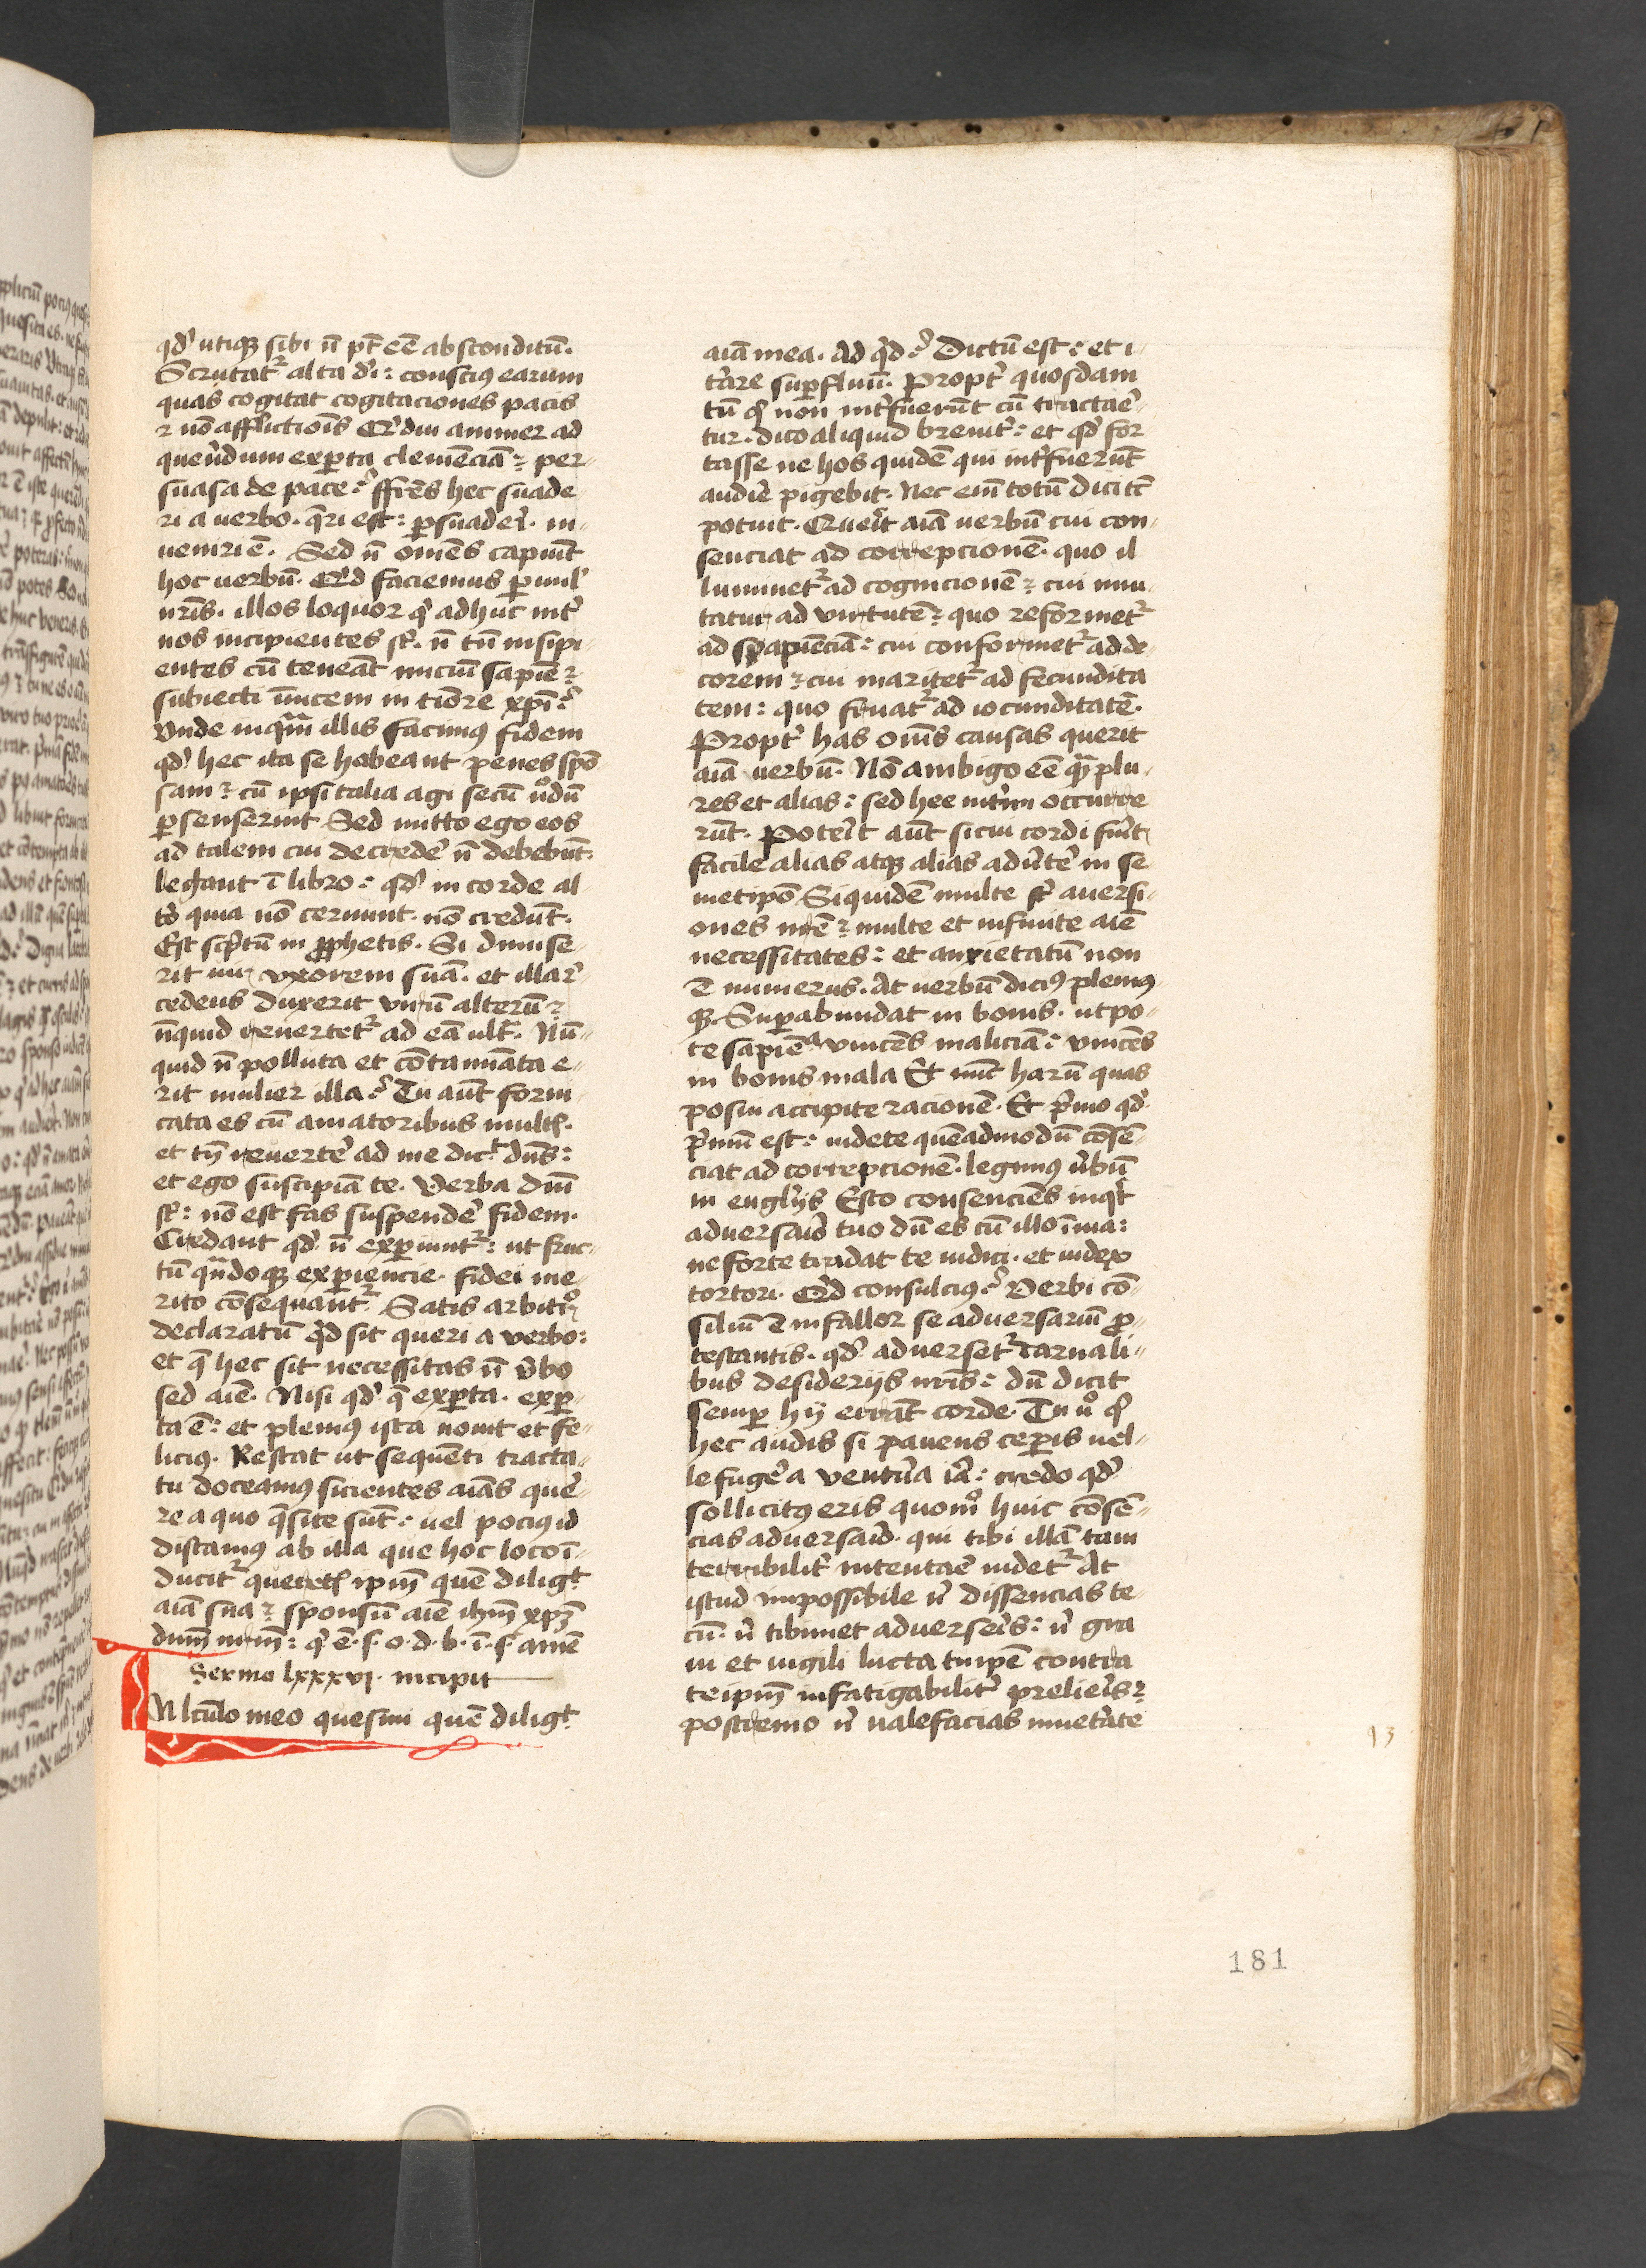 qd' utiqꝫ sibi n̄ pt̄ eē absconditū.
Scrutat᷑ alta di : conscius earum
quas cogitat cogitaciones pacis
⁊ nō afflictiōis Qr̄ diu ammer ad
querēdum exp̱ta clemēciā : per-
suasa de pace : ffrēs hec suade
ri a uerbo. q̄ri est : p̱suaderi. in-
ueniri ē. Sed n̄ omēs capiūt
hoc uerbū. Qid faciemus p̱uul'
nr̄is. illos loquor qͥ adhuc int̓
nos incipientes sͭ. n̄ tn̄ insipi-
entes cū teneāt iniciū sapiē :
subiecti inuicem in tiōre xp̄i :
Vnde inqͣm illis facimus fidem
qd' hec ita se habeant penes spō-
sam : cū ipsi talia agi secū nͦdū
p̱senserint Sed mitto ego eos
ad talem cui decrede n̄ debebūt.
legant ī libro : qd' in corde al-
to quia nō cernunt. nō credūt.
Est sc̓ptū in ꝓphetis. Si dimise-
rit uir uxorem suā. et illa re-
cedens duxerit virū alterū :
nūquid reuertet᷑ ad eā ult̓. Nū-
quid n̄ polluta et cōtamīata e-
rit mulier illa : Tu aūt forni
cata es cū amatoribus mult̓.
et tn̄ reuerte ad me dic̄ dn̄s :
et ego suscipiā te. Verba dn̄i
sͭ : nō est fas suspende fidem.
Credant qd' n̄ experiunt᷑ : ut fruc-
tū qn̄doqꝫ exp̱iencie. fidei me-
rito cōsequant᷑. Satis arbitroꝛ
declaratū qͥd sit queri a verbo :
et q̄ hec sit necessitas n̄ v̄bo
sed aīe. Nisi qd' q̄ exp̱ta. exp̱-
ta ē : et plenius ista nouit et fe-
licius. Restat ut sequēti tracta-
tu doceamus sicientes aīas que-
re a quo q̄site sūt : uel pocius id
discamus ab illa que hoc loco ī-
ducit᷑ querere ip̄m quē dilig̓t
aīa sua : sponsū aīe ihm̄ xp̄m
dnm̄ nr̄m : qͥ.ē.s.o.d.b.ī.s. amē
Sermo lxxxvi. incipit
IN lectulo meo quesiui quē dilig̓t
aīa mea. Ad qͥd : Dictū est : et i-
t̓are suꝑfluū. Propt̓ quosdam
tn̄ qͥ non int̓fuerūt cū tractare-
tur. dico aliquid breuit̓ : et qd' for
tasse ne hos quidē qui int̓fuerūt
audire pigebit. Nec em̄ totū dici tc̄
potuit. Querit aīa uerbū cui con-
senciat ad correpcionē. quo il
luminet᷑ ad cognicionē : cui inni-
tatur ad virtutē : quo reformet᷑
ad sapiēciā : cui conformet᷑ ad de-
corem : cui maritet᷑ ad fecundita
tem : quo fruat᷑ ad iocunditatē.
Propt̓ has om̄s causas querit
aīa uerbū. Nō ambigo eē qͣm plu-
res et alias : sed hee int̓im occurre
rūt. Poterit aūt sicui cordi fuīt
facile alias atqꝫ alias aduertere in se
metip̄o Siquidē multe sͭ auersi-
ones nr̄e : multe et infinite aīe
necessitates : et anxietatū non
ē numerus. At uerbū dicius pleniꝰ-
qꝫ Suꝑabundat in bonis. utpo-
te sapiēᵃ vincēs maliciā : vincēs
in bonis mala Et nūc harū quas
posui accipite racionē. Et pͥmo qd'
pͥmū est : uidete quēadmodū cōsē-
ciat ad correpcionē. legimus v̄bū
in euglijs Esto consenciēs inqͥt
adversario tuo dū es cū illo ī uia :
ne forte tradat te iudici. et iudex
tortori. Qid consulcius : Verbi cō-
siliū ē ni fallor se adversariū ꝓ-
testantis. qd' adverset᷑ carnali-
bus desiderijs nr̄is : dū dicit
semꝑ hij errāt corde. Tu uͦ qͥ
hec audis si pauens ceꝑis uel-
le fugere a ventura ira : credo qd'
sollicitus eris quomͦ huic cōsē-
cias adversario. qui tibi illā tam
terribilit̓ intentare uidet᷑ At
istud impossibile nͥ dissencias te-
cū. nͥ tibimet adverseris : nͥ gra
ui et iugili lucta tuip̄e contra
teip̄m infatigabilit̓ prelieris :
postremo nͥ valefacias inuet̓ate
13
181